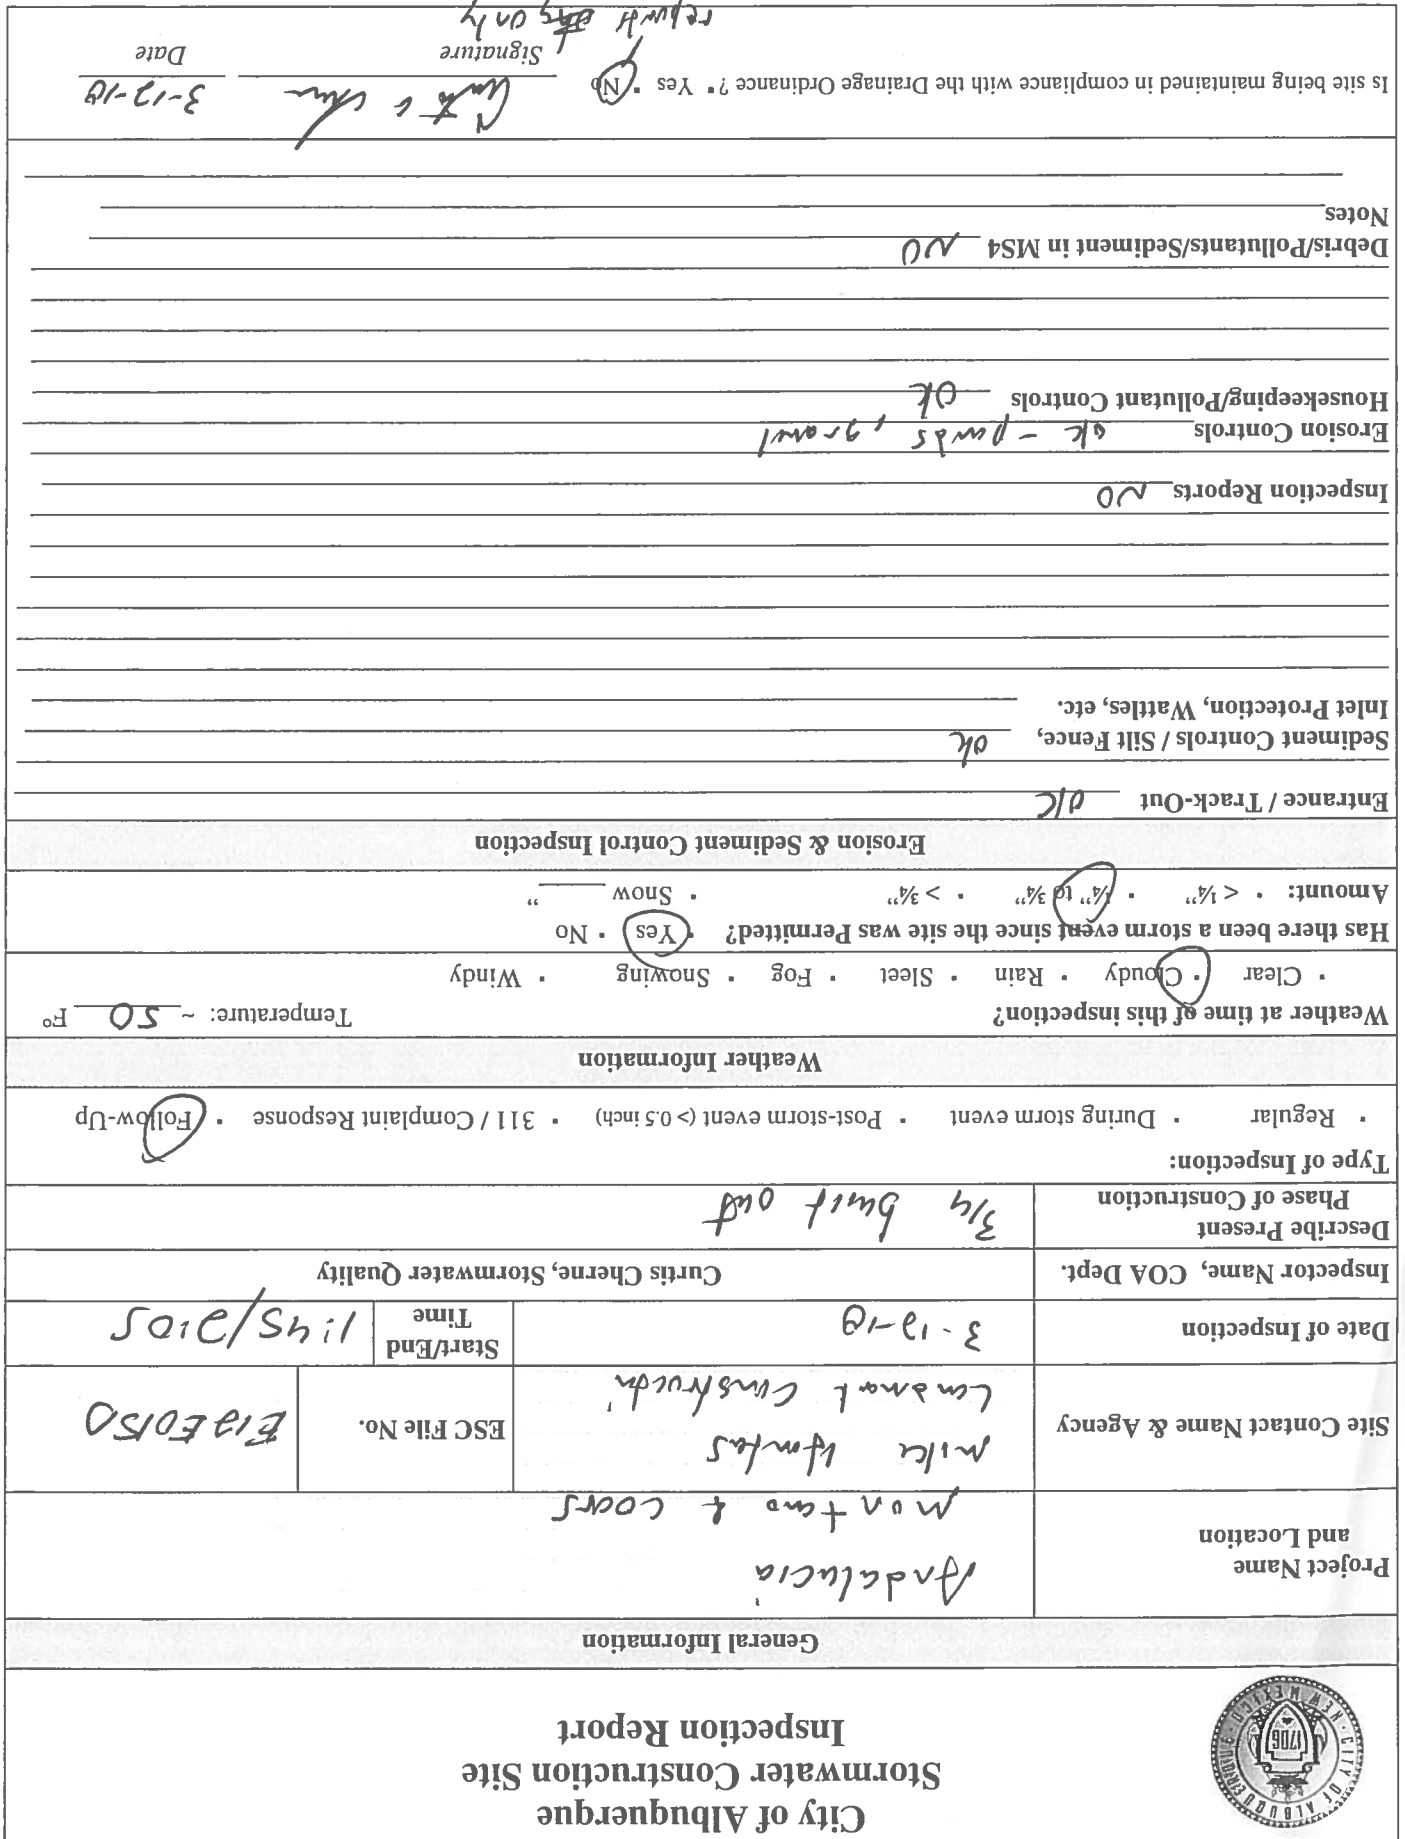 CITY OF ALBUQUERQUE
NEW MEXICO
1706
City of Albuquerque
Stormwater Construction Site
Inspection Report
General Information
Project Name
and Location
Andalucia
Montano & Coors
Site Contact Name & Agency
Mike
Construct
ESC File No.
E12E015D
Date of Inspection
3-12-18
Start/End
Time
1:45/2:05
Inspector Name, COA Dept.
Curtis Cherne, Stormwater Quality
Describe Present
Phase of Construction
3/4 built out
Type of Inspection:
▪ Regular ▪ During storm event ▪ Post-storm event (> 0.5 inch) ▪ 311 / Complaint Response ▪ Follow-Up
Weather Information
Weather at time of this inspection? Temperature: ~ 50 F°
▪ Clear ▪ Cloudy ▪ Rain ▪ Sleet ▪ Fog ▪ Snowing ▪ Windy
Has there been a storm event since the site was Permitted? ▪ Yes ▪ No
Amount: ▪ < ¼" ▪ ¼" to ¾" ▪ > ¾" ▪ Snow ____ "
Erosion & Sediment Control Inspection
Entrance / Track-Out OK
Sediment Controls / Silt Fence, ok
Inlet Protection, Wattles, etc.
Inspection Reports NO
Erosion Controls ok - ponds, gravel
Housekeeping/Pollutant Controls Ok
Debris/Pollutants/Sediment in MS4 NO
Notes
Is site being maintained in compliance with the Drainage Ordinance ? ▪ Yes ▪ No
3-12-18
Signature Date
reports only